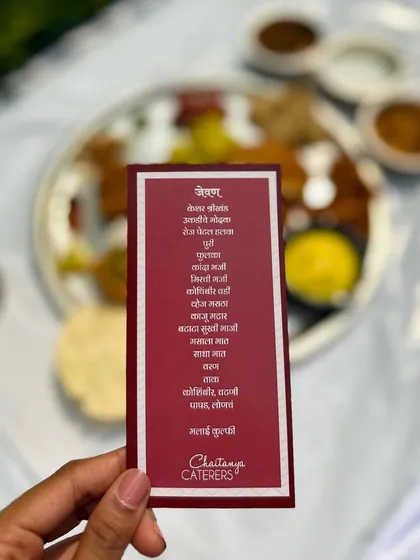 जेवण
केशर श्रीखंड
उकडीचे मोदक
रोज पेटल हलवा
पुरी
फुलका
कांदा भजी
मिरची भजी
कोथिंबीर वडी
व्हेज मराठा
काजू मटार
बटाटा सुखी भाजी
मसाला भात
साधा भात
वरण
ताक
कोशिंबीर, चटणी
पापड, लोणचं
मलाई कुल्फी
Chaitanya
CATERERS